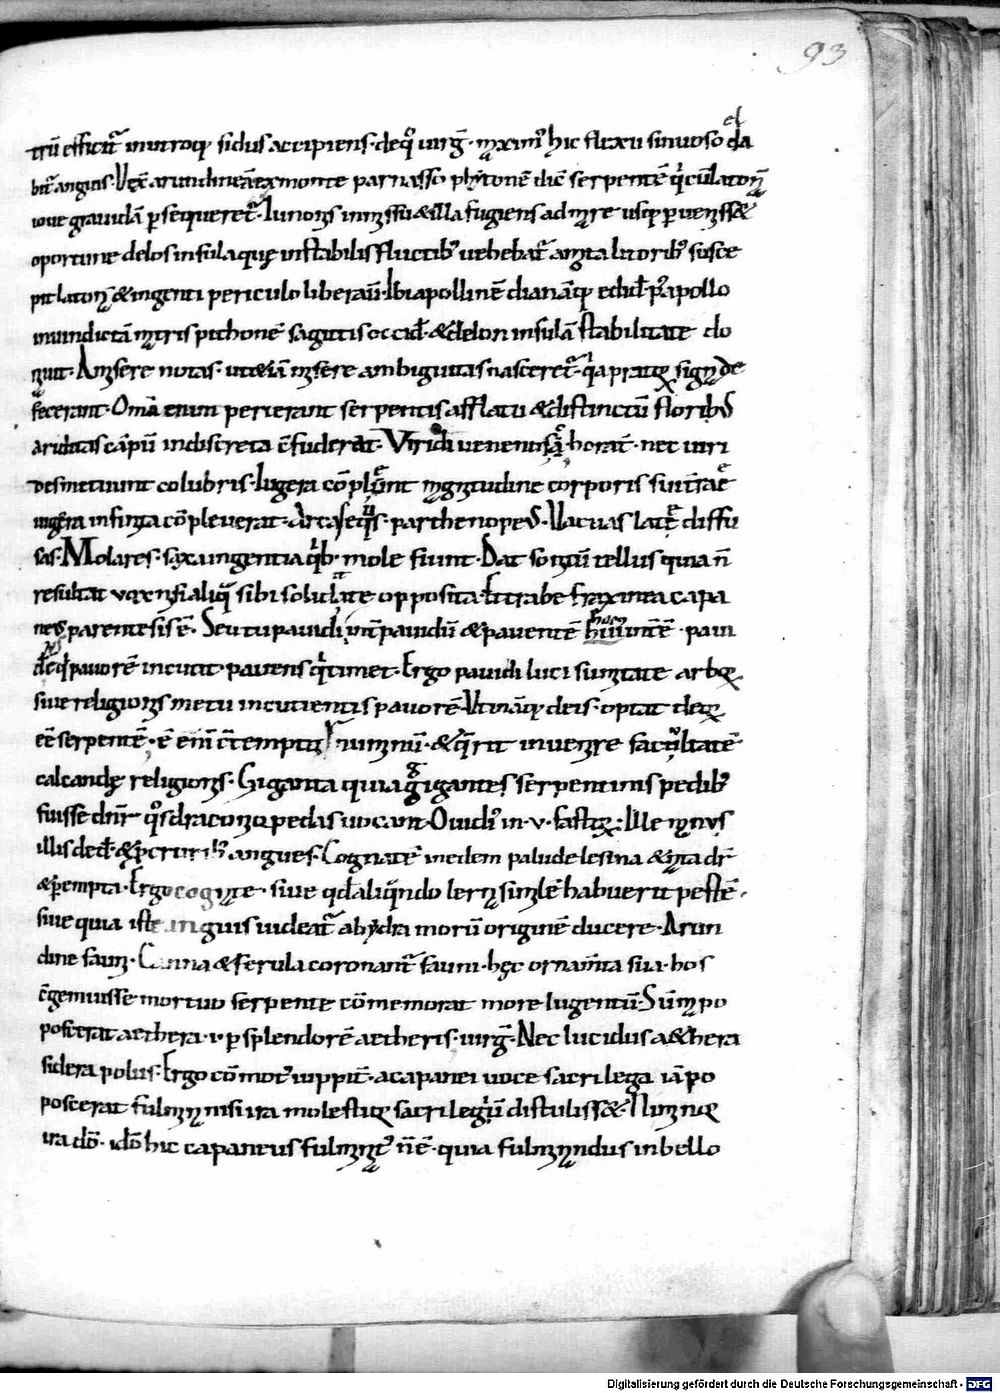 93
trū efficit̄ in utroq; sidus accipiens · de q̊ uirḡ · maxim᷒ hic flexu sinuoso el da
bit̄ anguis · Vł arundineā ex monte parnasso phitonē dic̄ serpentē q̇ cū latonā
ioue grauidā p̄sequeret̄ · Iunonis inmissu & illa fugiens ad mare usq; p̄uenisset
oportune delos insula quę instabilis fluctib᷒ uehebat̄ litorib᷒ susce
pit latonā & ingenti periculo liberauit · Ibi apollinē dianāq; edid̄ · p᷒ apollo
inuindictā matris pithonē sagittis occid̄ · & delon insulā stabilitate do
nauit · Ansere notas · ut etiā in sere ambiguitas nasceret̄ · q̇a prator̄ signa de
fecerant · Om̄ia enim perierant serpentis afflatu & distinctū florib᷒
ariditas cāpū indiscreta c̄fuderat · Viridi ueneno horat̄ · nec uiri
des metiunt colubris · Iugera cōplent magnitudine corporis sui
iugera infinita cōpleuerat · Arcas eq̄s · parthenopeus · Vacuas late diffu
sas · Molares · saxa ingentia q̇b᷒ mole fiunt · Dat sonitū tellus quia n̄
resultat uox nisi aliq̄ sibi soliditate opposita · trabe fraxinea capa
neus parentesis ē · Seu tu pauidi int̄ pauidū & pauentē hoc int̄ē · paui
d᷒ e q̇ pauorē incutit · pauens q̇ timet · Ergo pauidi luci sanitate arbor̄
siue religionis metu incutientis pauorē · Vtināq; deis · optat deor̄
eē serpentē · ē eni c̄temptor numinū · & q̄rit inuenire facultatē
calcandę religionis · Giganta quia gigantes serpentinis pedib᷒
fuisse dn̄r q̊s draconipedas uocant · Ouidi᷒ in · v · fastor̄ · Mille manus
illis ded̄ & p̄ cruribus angues · Cognatē in eadem palude lesina & nata dr̄
& p̄empta · Ergo cognate · siue qd aliq̄ndo lerna similē habuerit pestē ·
siue quia iste anguis uideat̄ ab ydra morū originē ducere · Arun
dine fauni · Canna & ferula coronant̄ fauni · hęc ornam̄ta sua · hos
c̄gemuisse mortuo serpente cōmemorat more lugentū · Sūma po
poscerat aethera · i · p splendorē aetheris · uirḡ · Nec lucidus aethera
sidera polus · Ergo cōmot᷒ iuppit̄ · a capanei uoce sacrilega iā po
poscerat fulmina nisi ira molestior sacrilegiū distulisset · Nunq;
ira dō · idō hic capaneus fulminat᷒ n̄ ē · quia fulminandus in bello
Digitalisierung gefördert durch die Deutsche Forschungsgemeinschaft - DFG